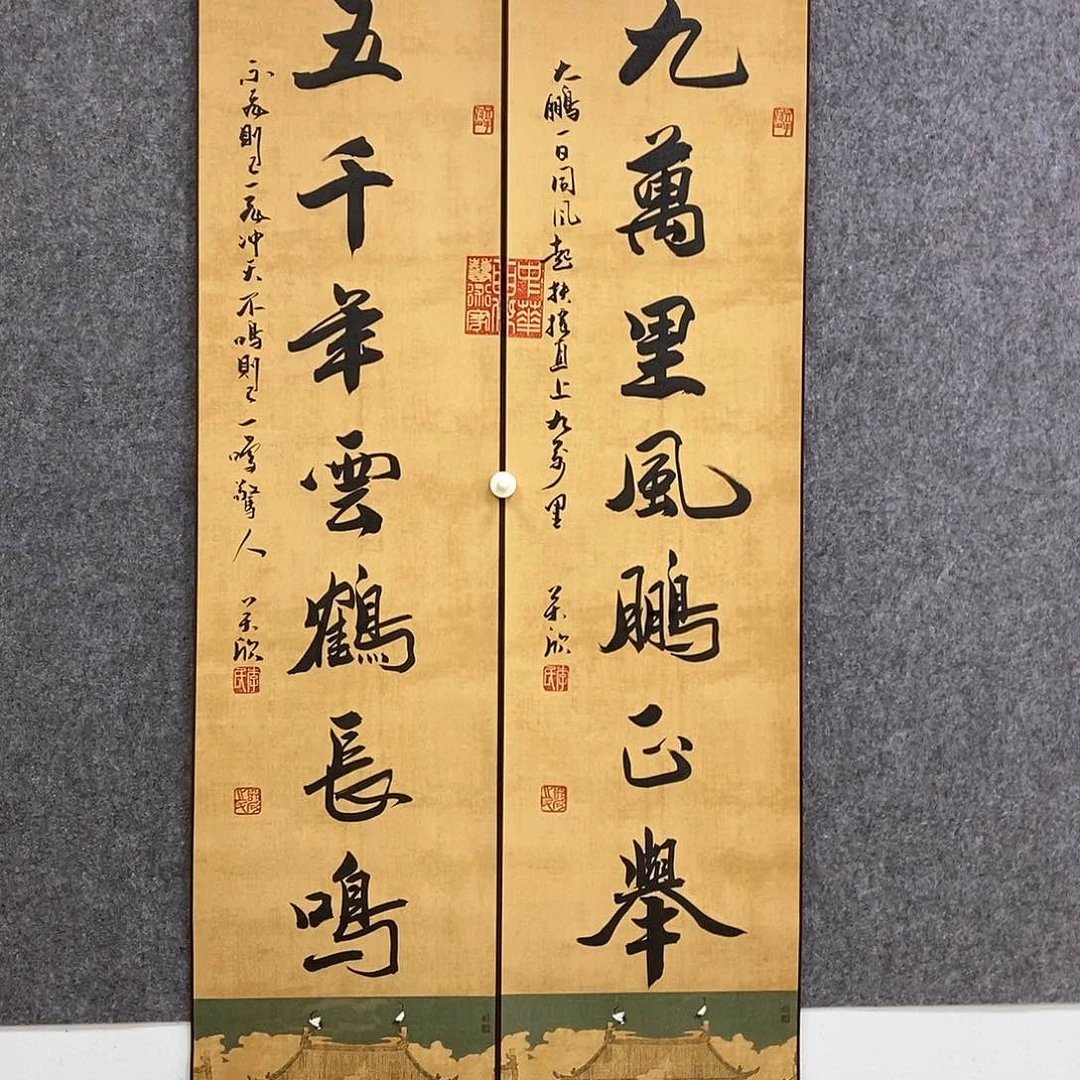 九萬里風鵬正舉
大鵬一日同风起扶摇直上九万里
荣欣
五千年雲鶴長鳴
不飛則已一飛冲天不鳴則已一鳴驚人
荣欣